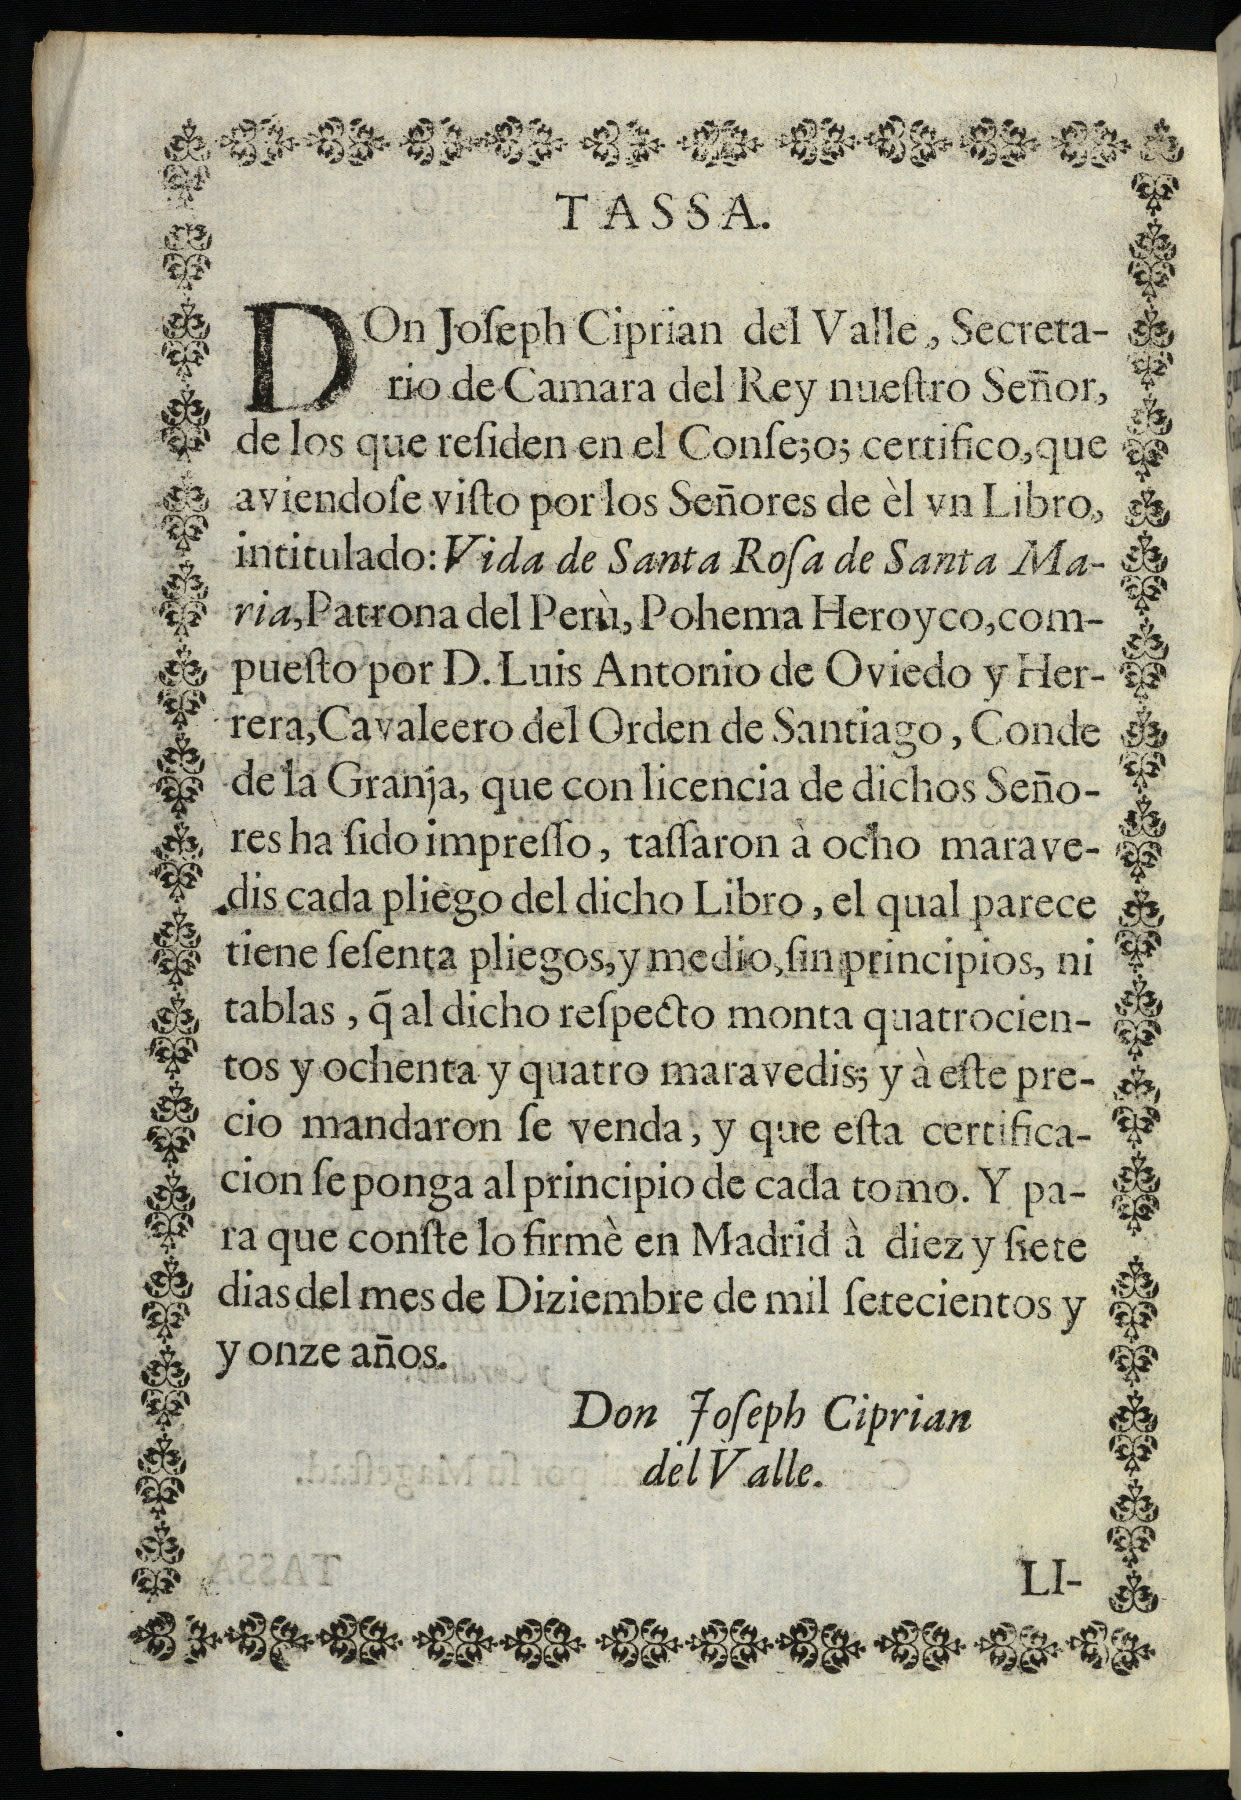 TASSA.
DOn Joſeph Ciprian del Valle, Secreta-
rio de Camara del Rey nueſtro Señor,
de los que reſiden en el Conſe;o; certifico, que
aviendoſe viſto por los Señores de èl vn Libro,
intitulado: Vida de Santa Roſa de Santa Ma-
ria, Patrona del Perù, Pohema Heroyco, com-
pueſto por D. Luis Antonio de Oviedo y Her-
rera, Cavaleero del Orden de Santiago, Conde
de la Granja, que con licencia de dichos Seño-
res ha ſido impreſſo, taſſaron à ocho marave-
dis cada pliego del dicho Libro, el qual parece
tiene ſeſenta pliegos, y medio, ſin principios, ni
tablas, q̃ al dicho reſpecto monta quatrocien-
tos y ochenta y quatro maravedis; y à eſte pre-
cio mandaron ſe venda, y que eſta certifica-
cion ſe ponga al principio de cada tomo. Y pa-
ra que conſte lo firmè en Madrid à diez y ſiete
dias del mes de Diziembre de mil ſetecientos y
y onze años.
Don Joſeph Ciprian
del Valle.
LI-